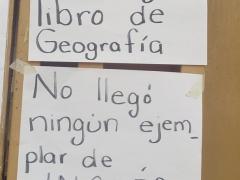 libro de
Geografía
No llegó
ningún ejem_
plar de